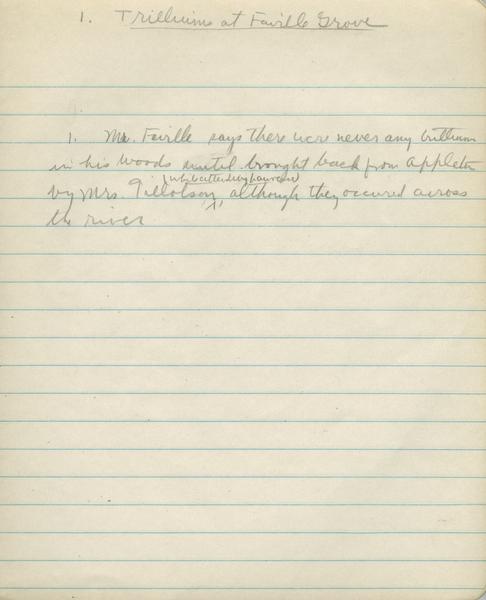 1. Trilliums at Faville Grove
1. Mr. Faville says there were never any trillium
in his woods until brought back from Appleton
by Mrs. Tillotson, although they occured across
the river